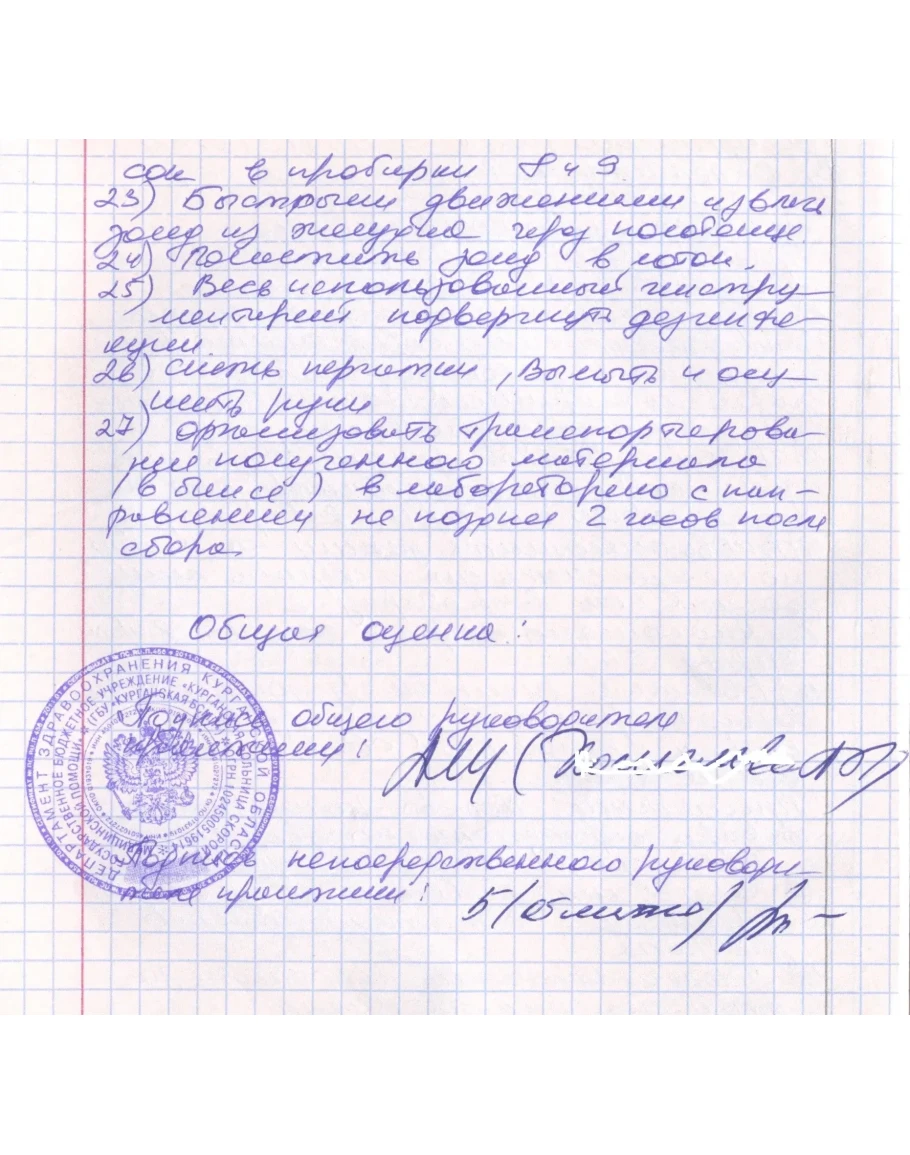 сок в пробирки 8 и 9
23) Быстрым движением извлечь
зонд из желудка через полотенце
24) Поместить зонд в лоток.
25) Весь использованный инстру-
ментарий подвергнуть дезинфе-
кции
26) Снять перчатки, Вымыть и осу-
шить руки
27) Организовать транспортирова-
ние полученного материала
(в биксе) в лабораторию с нап-
равлением не позднее 2 часов после
сбора.
Общая оценка:
Подпись общего руководителя
практики:
Подпись непосредственного руководи-
теля практики: 5 (отлично)
ДЕПАРТАМЕНТ ЗДРАВООХРАНЕНИЯ КУРГАНСКОЙ ОБЛАСТИ
ГОСУДАРСТВЕННОЕ БЮДЖЕТНОЕ УЧРЕЖДЕНИЕ «КУРГАНСКАЯ БОЛЬНИЦА СКОРОЙ МЕДИЦИНСКОЙ ПОМОЩИ»